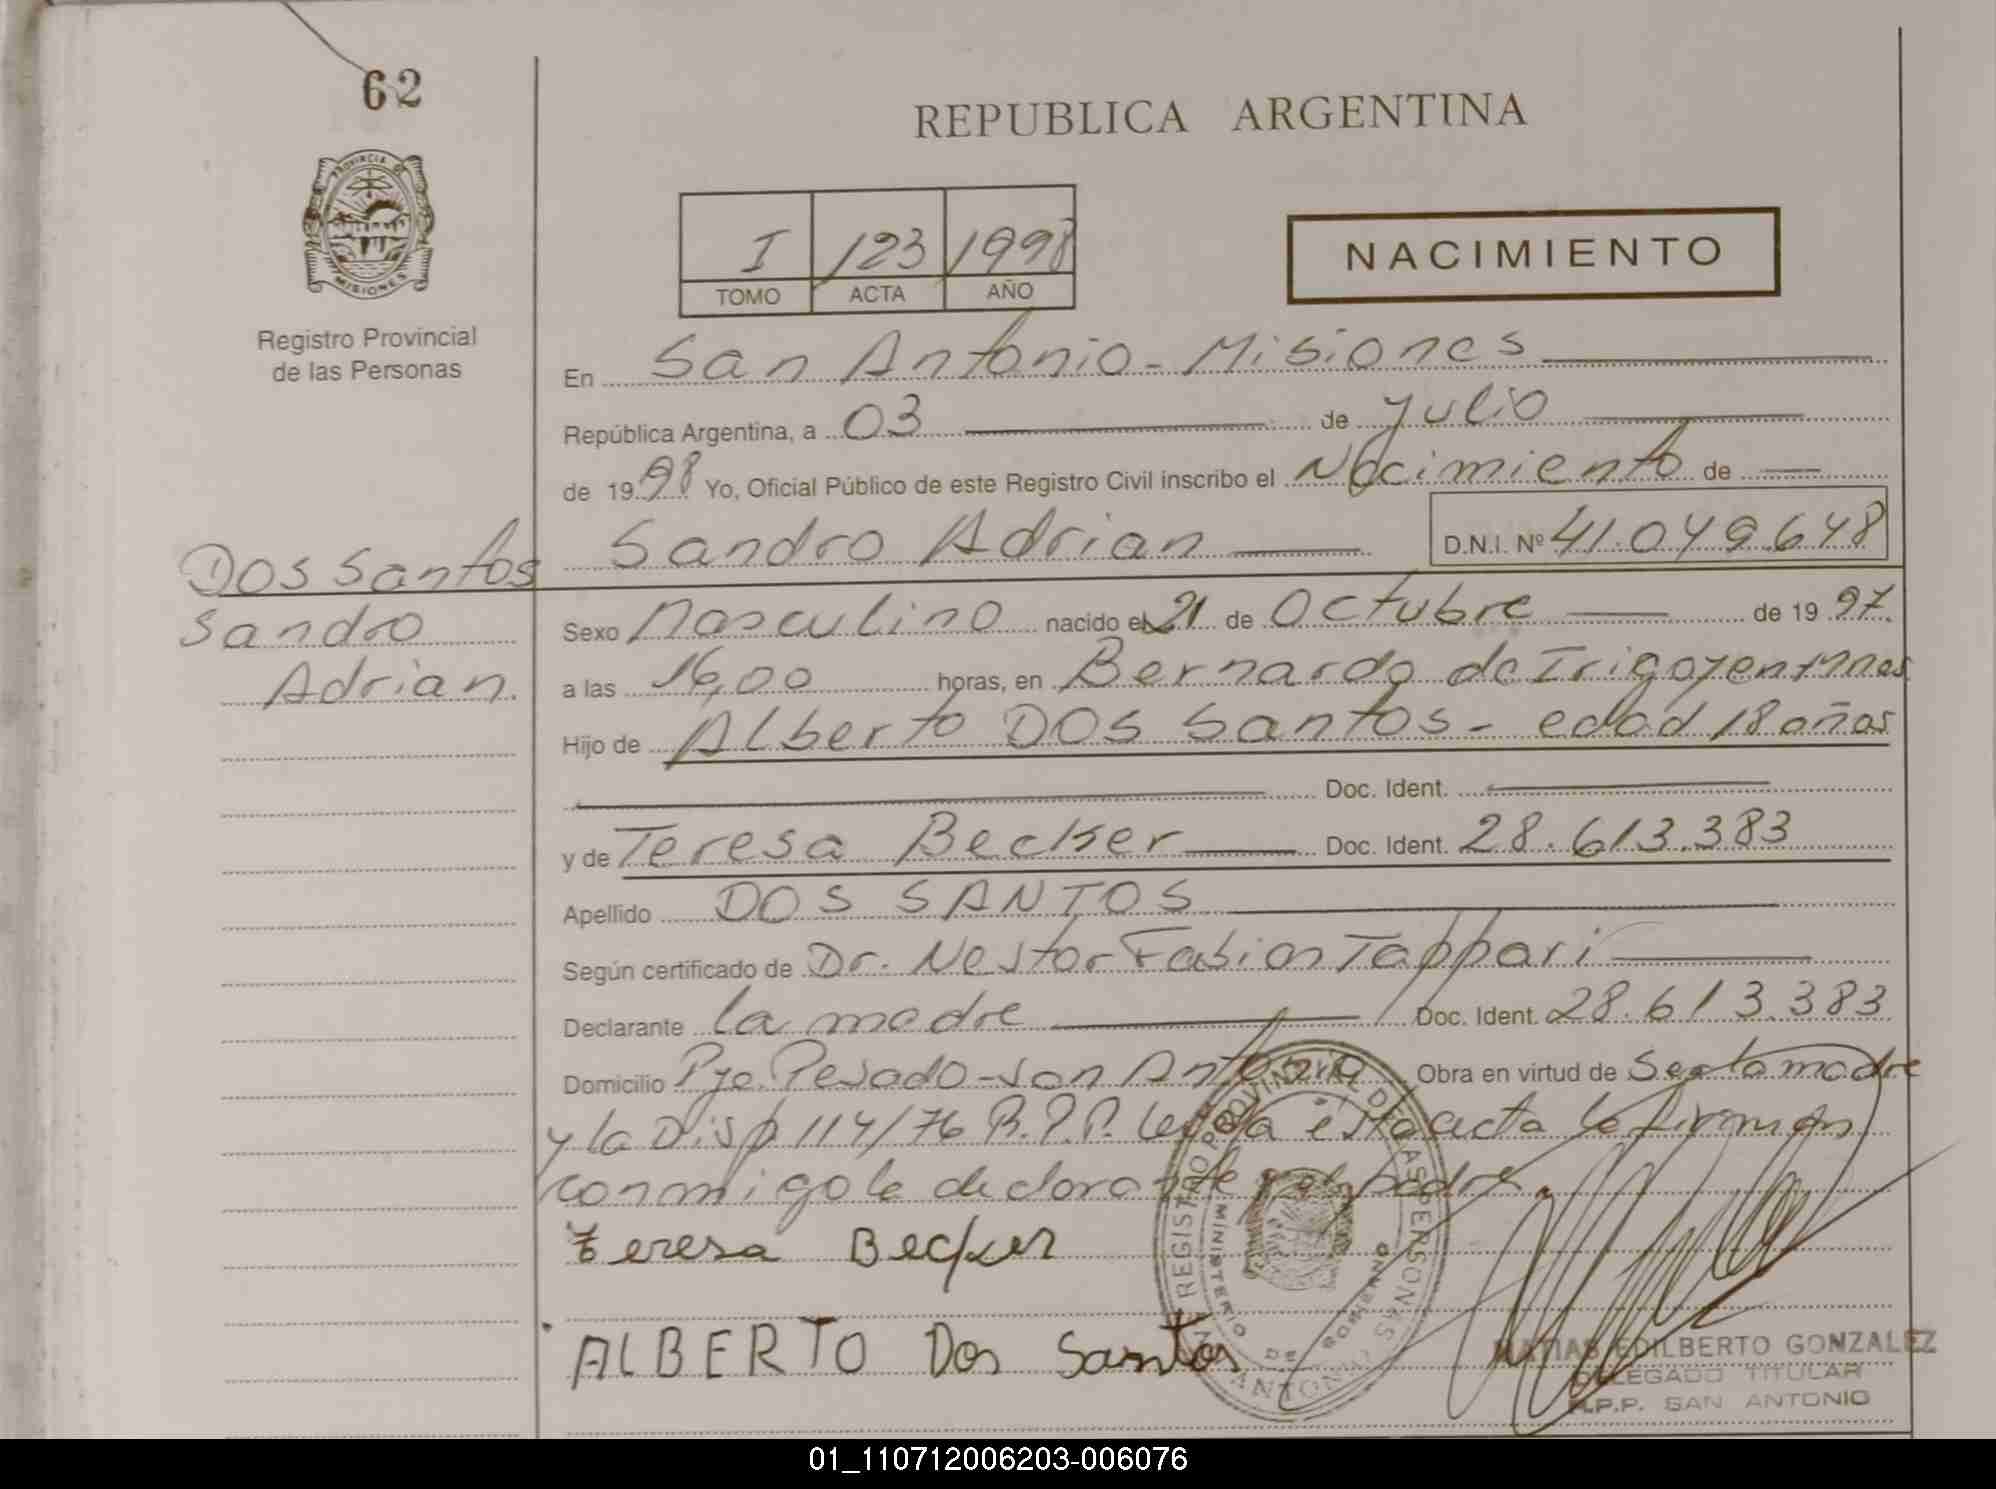 62
REPUBLICA ARGENTINA
PROVINCIA DE
MISIONES
Registro Provincial
de las Personas
I 123 1998
TOMO ACTA AÑO
NACIMIENTO
En San Antonio - Misiones
República Argentina, a 03 de Julio
de 1998 Yo, Oficial Público de este Registro Civil inscribo el Nacimiento de
Sandro Adrian D.N.I. Nº 41.049.648
Dos Santos
Sandro
Adrian.
Sexo Masculino nacido el 21 de Octubre de 1997.
a las 16,00 horas, en Bernardo de Irigoyen Mnes
Hijo de Alberto DOS Santos - edad 18 años
Doc. Ident.
y de Teresa Becker Doc. Ident. 28.613.383
Apellido DOS SANTOS
Según certificado de Dr. Nestor Fabian Tappari
Declarante la madre Doc. Ident. 28.613.383
Domicilio Pje. Pesado - San Antonio Obra en virtud de madre
y la Disp 114/76 R.P.P. Leida esta acta la firman
conmigo la declarante y el padre.
Teresa Becker
ALBERTO Dos Santos
REGISTRO PROVINCIAL DE LAS PERSONAS
MINISTERIO DE GOBIERNO
SAN ANTONIO
MATIAS EDILBERTO GONZALEZ
DELEGADO TITULAR
R.P.P. SAN ANTONIO
01_110712006203-006076